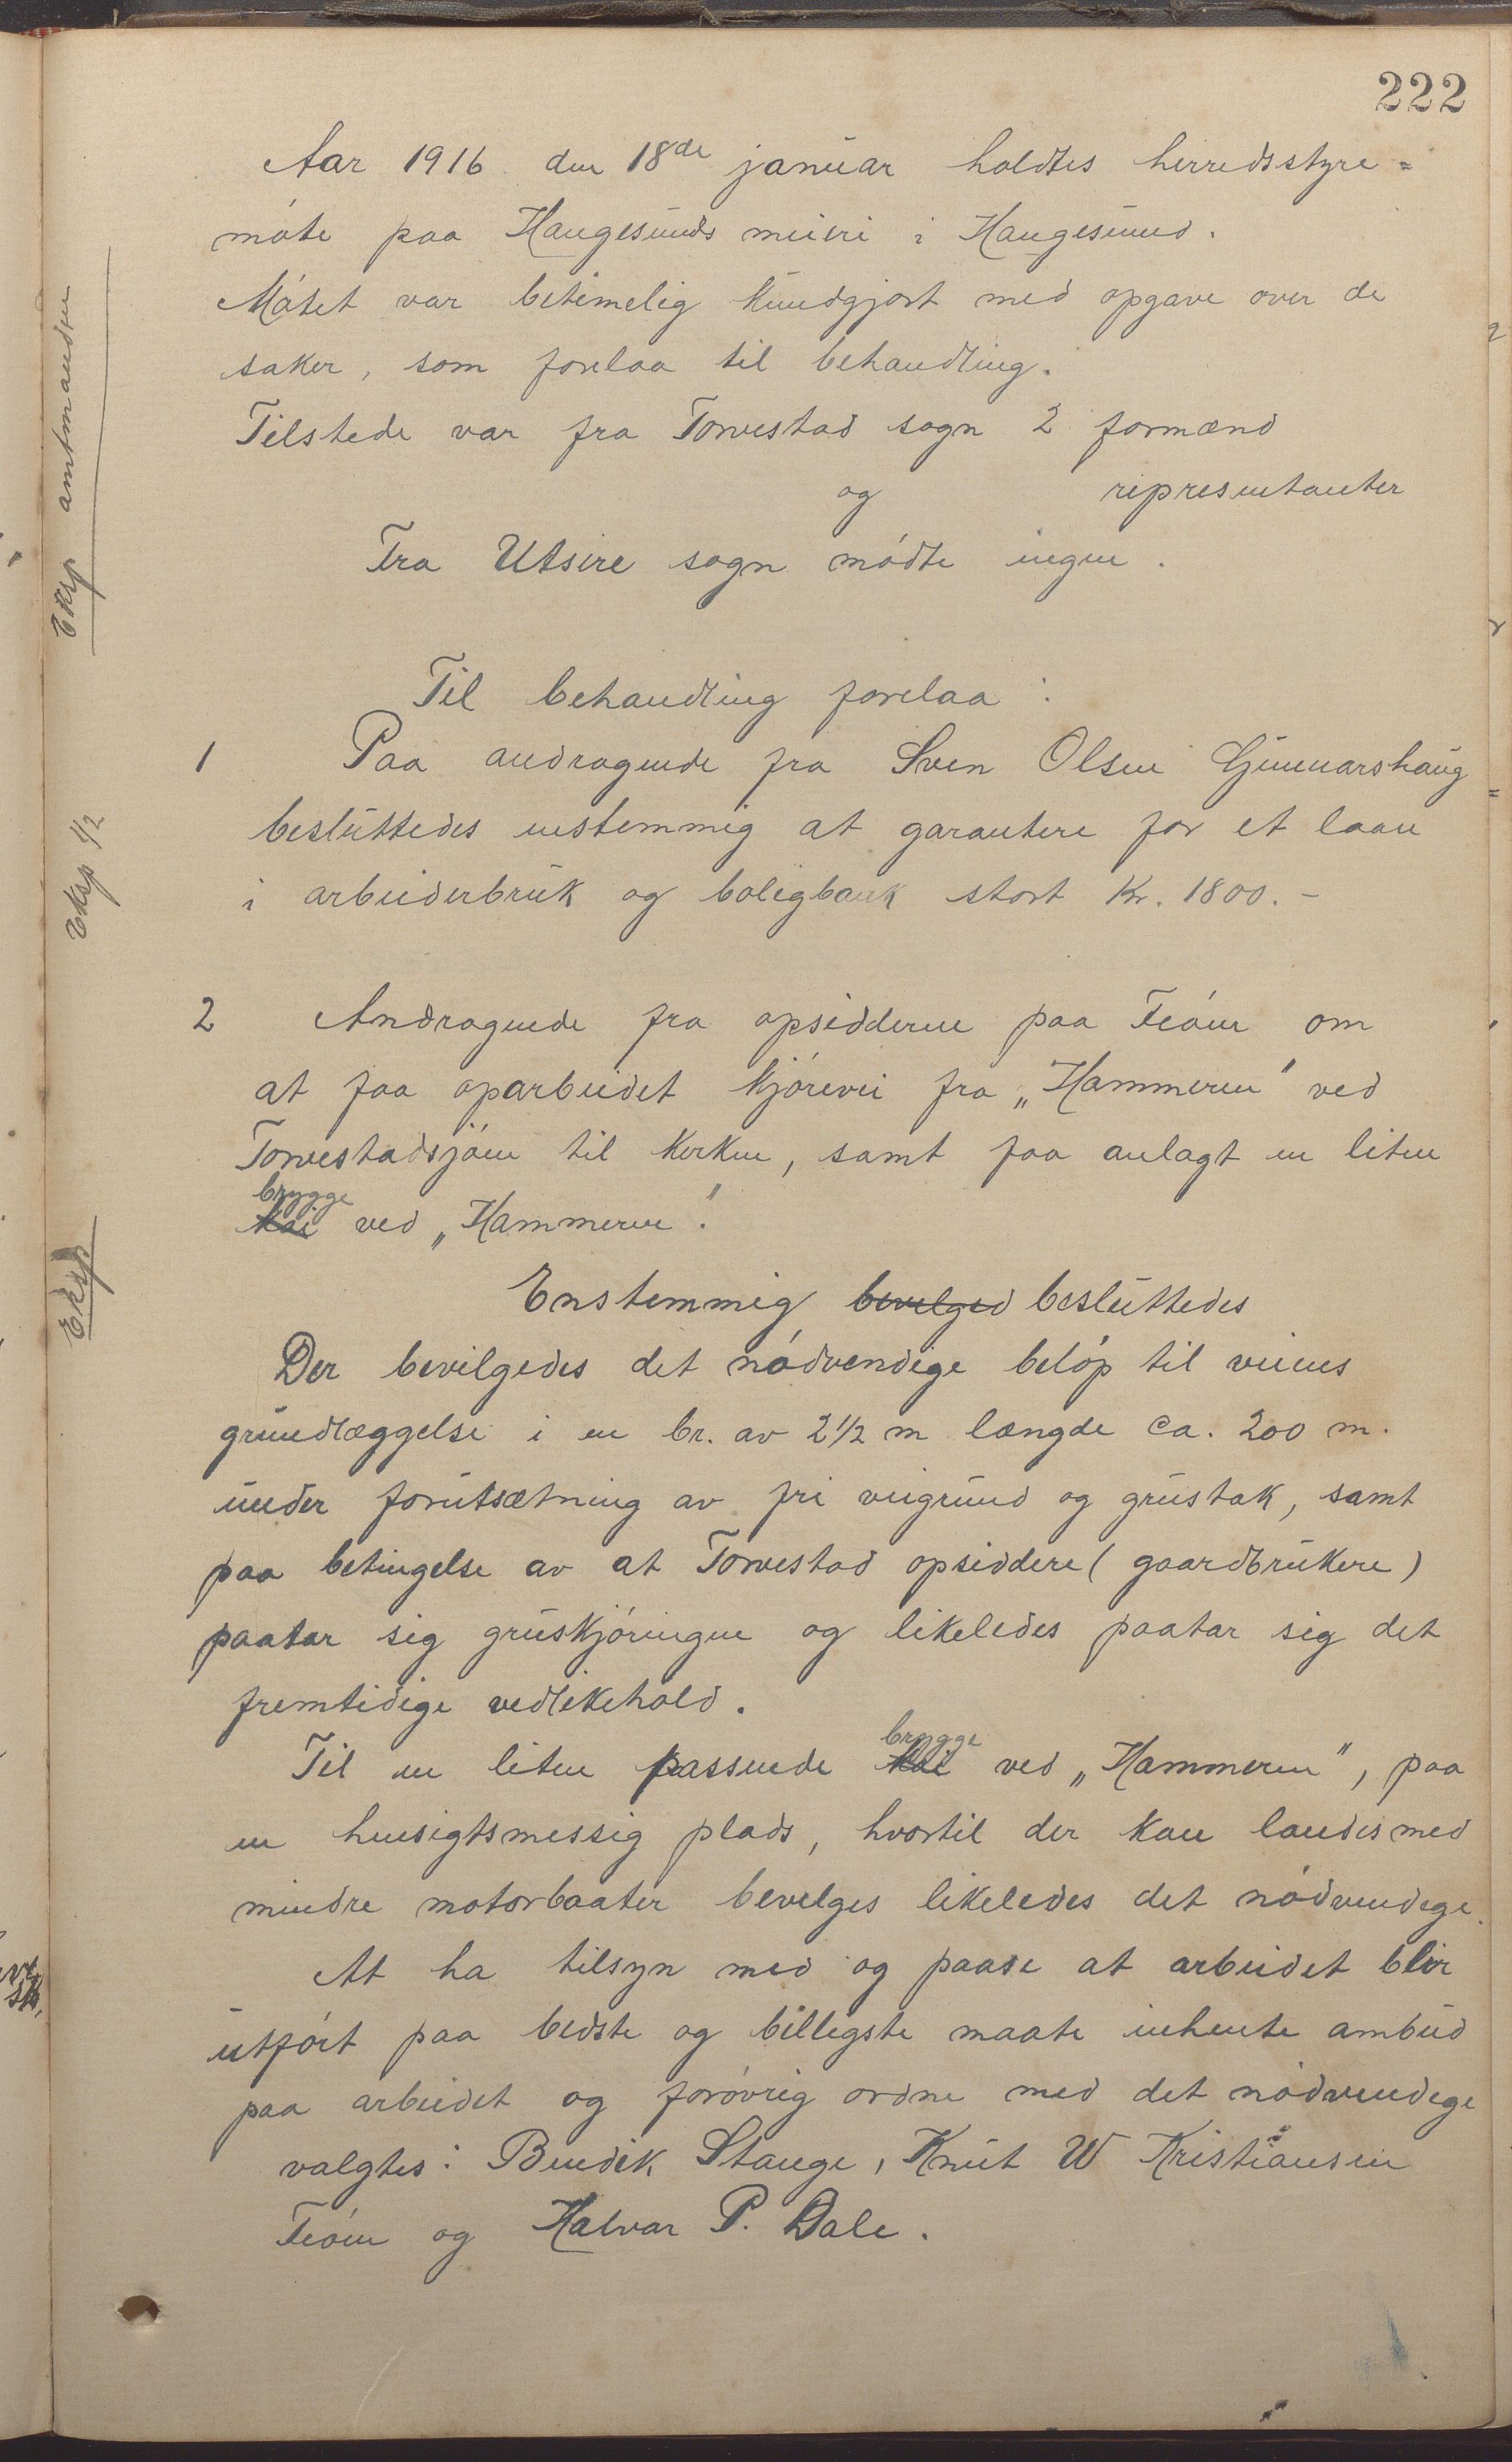 222
Aar 1916 den 18de januar holdtes herredsstyre=
møte paa Haugesunds meieri i Haugesund.
Møtet var betimelig kundgjort med opgave over de
saker, som forelaa til behandling.
Tilstede var fra Torvestad sogn 2 formænd
og representanter
Fra Utsire sogn mødte ingen.
Eksp amtmanden
Til behandling forelaa:
1 Paa andragende fra Sven Olsen Gunnarshaug
besluttedes enstemmig at garantere for et laan
i arbeiderbruk og boligbank stort Kr. 1800.-
Eksp 1/2
2 Andragende fra opsidderne paa Feøen om
at faa oparbeidet kjørevei fra „Hammeren" ved
Torvestadsjøen til kirken, samt faa anlagt en liten
brygge
kai ved „Hammeren".
Eksp
Enstemmig bevelged besluttedes
Der bevilgedes det nødvendige beløp til veiens
grundlæggelse i en br. av 2½ m længde ca. 200 m.
under forutsætning av fri veigrund og grustak, samt
paa betingelse av at Torvestad opsiddere (gaardbrukere)
paatar sig gruskjøringen og likeledes paatar sig det
fremtidige vedlikehold.
brygge
Til en liten passende kai ved „Hammeren", paa
en hensigtsmessig plads, hvortil der kan landes med
mindre motorbaater bevelges likeledes det nødvendege.
At ha tilsyn med og paase at arbeidet blir
utført paa bedste og billegste maate inhente ambud
paa arbeidet og forøvrig ordne med det nødvendege
valgtes: Bendik Stange, Knut W Kristiansen
Feøen og Halvar P. Dale.